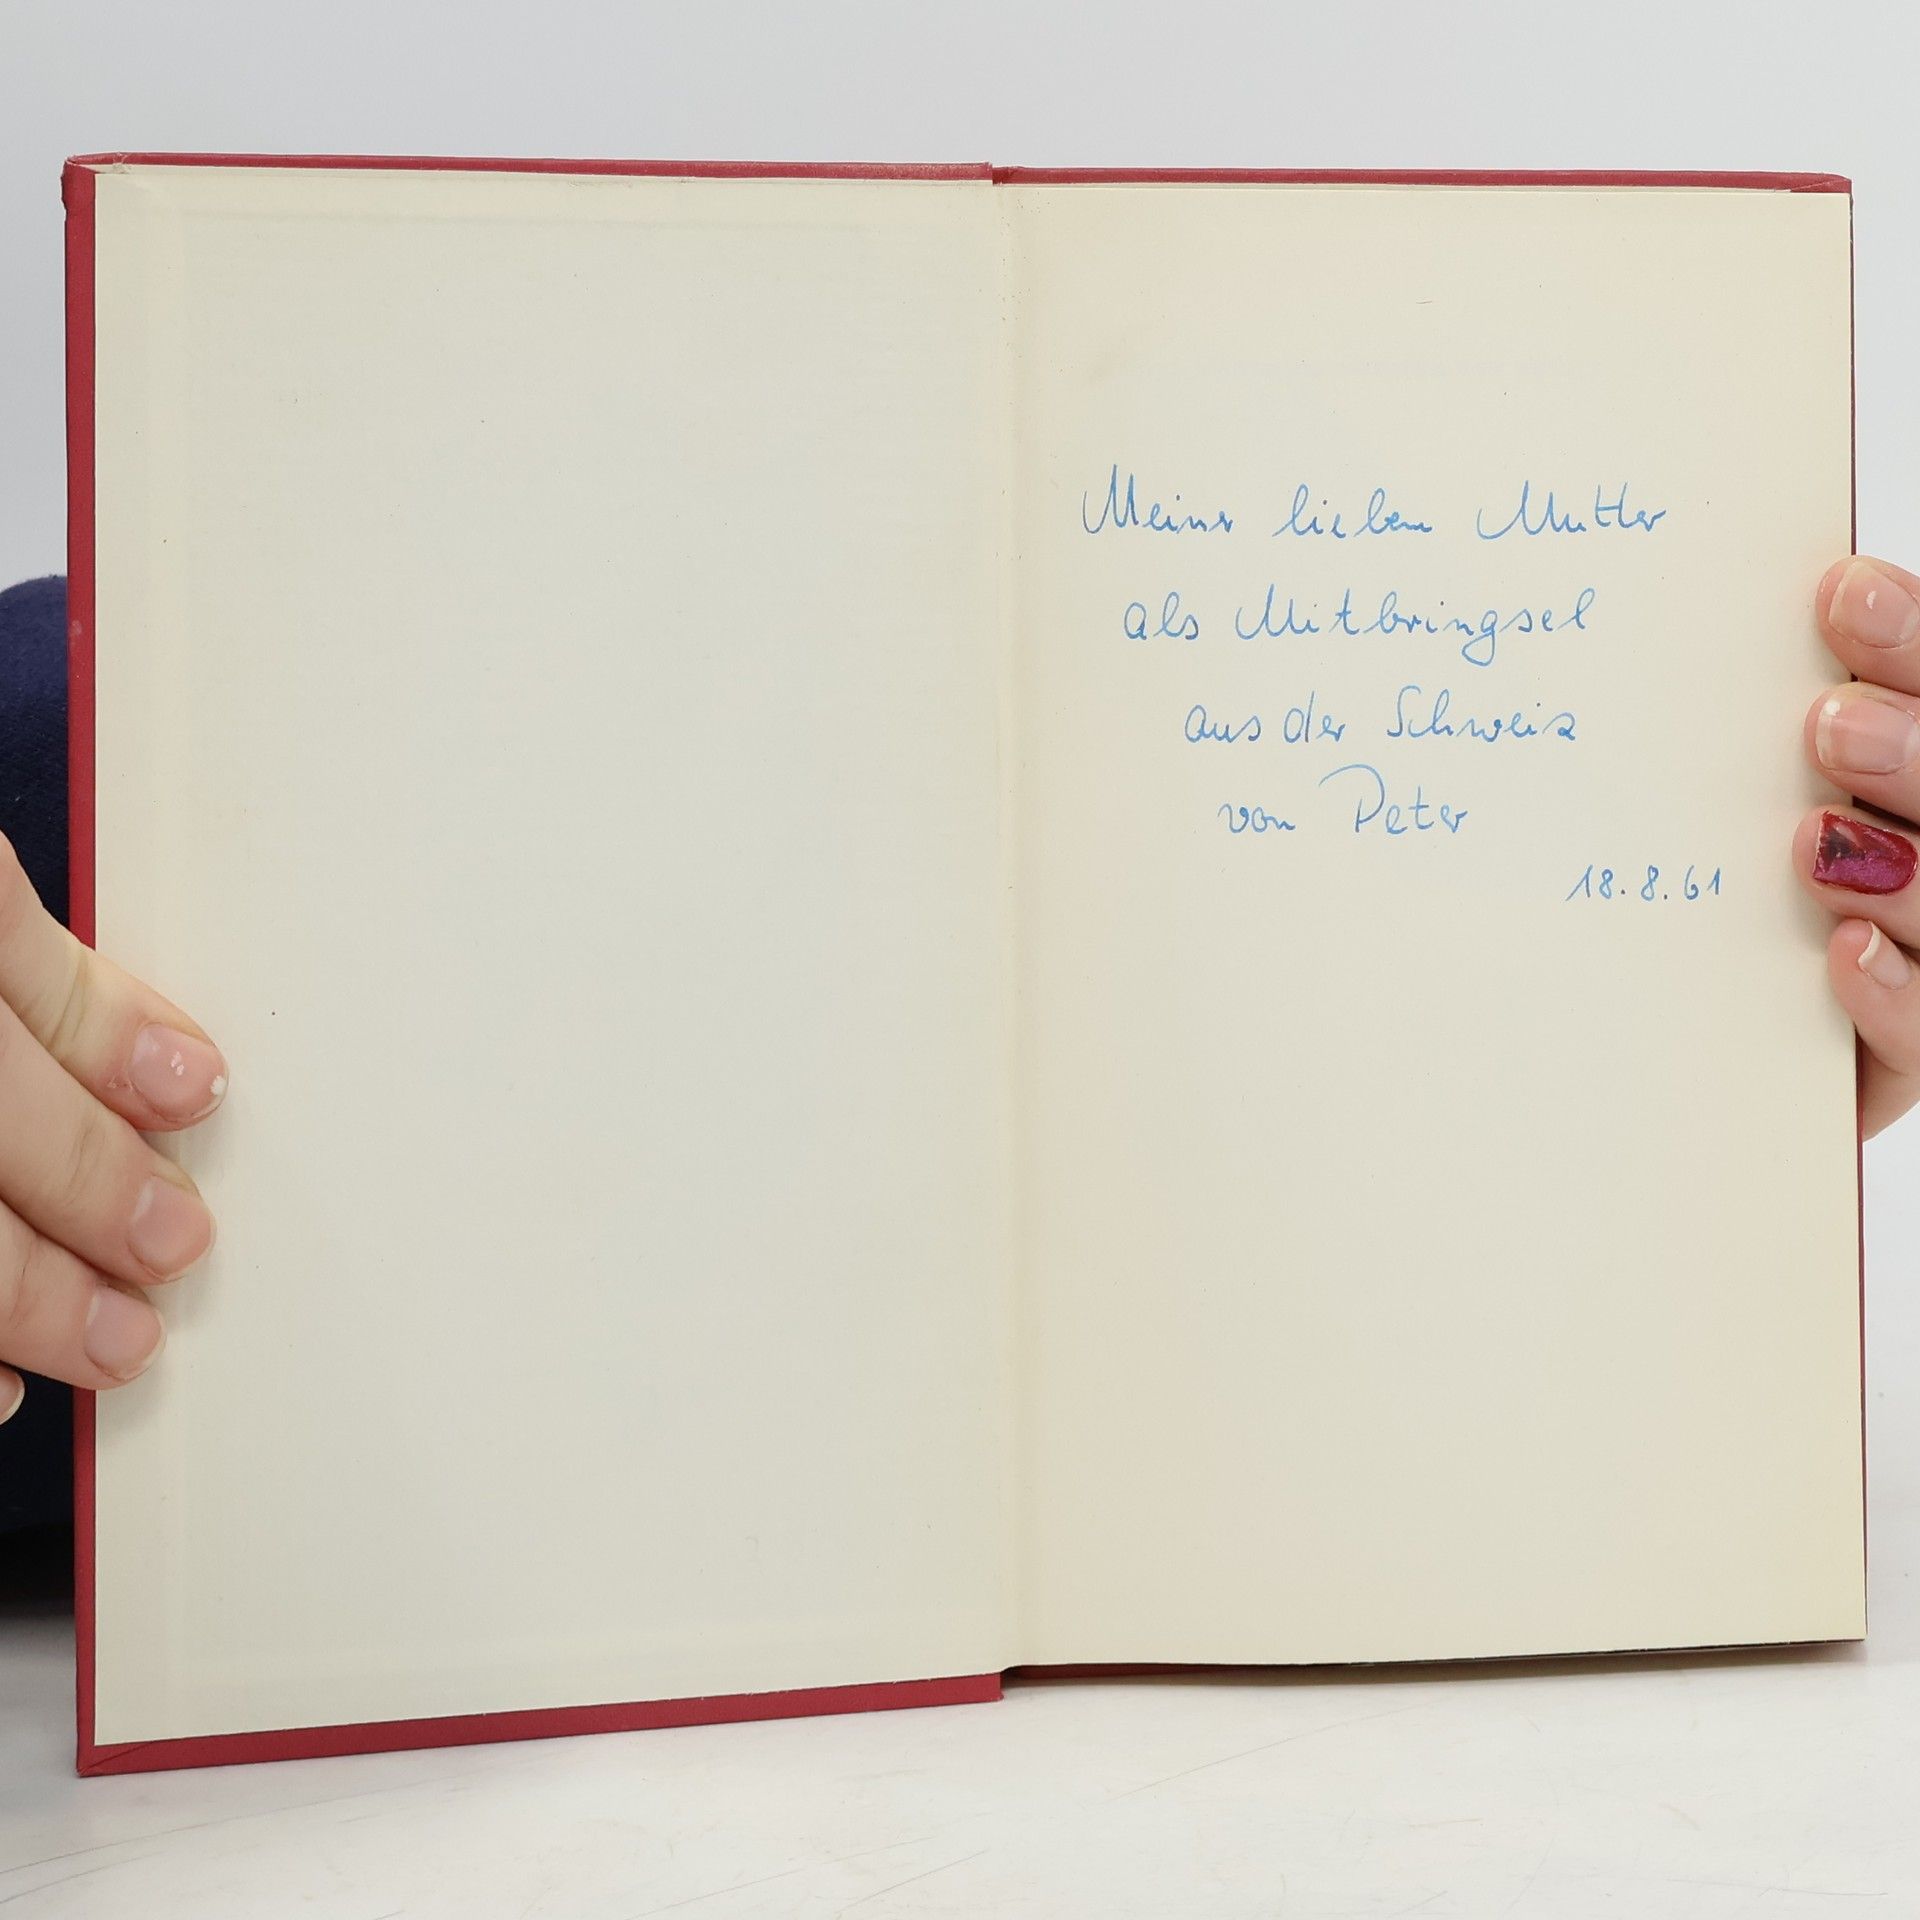 Meiner lieben Mutter
als Mitbringsel
aus der Schweiz
von Peter
18.8.61